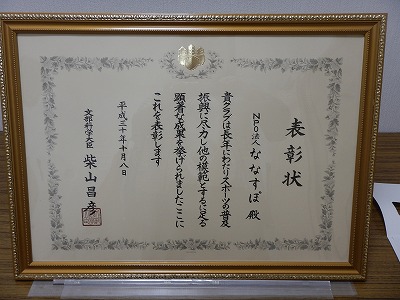 表彰状
NPO法人 ななすぽ 殿
貴クラブは長年にわたりスポーツの普及
振興に尽力し他の模範とするに足る
顕著な成果を挙げられましたここに
これを表彰します
平成三十年十月八日
文部科学大臣 柴山昌彦